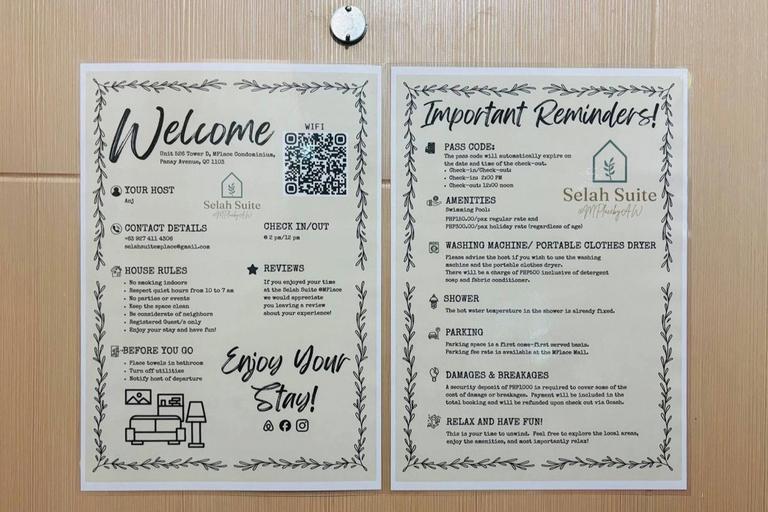 Welcome
WIFI
Unit 526 Tower D, MPlace Condominium,
Panay Avenue, QC 1103
YOUR HOST
Anj
Selah Suite
@MPlacebyAW
CONTACT DETAILS
+63 927 411 4306
selahsuitemplace@gmail.com
CHECK IN/OUT
@ 2 pm/12 pm
HOUSE RULES
• No smoking indoors
• Respect quiet hours from 10 to 7 am
• No parties or events
• Keep the space clean
• Be considerate of neighbors
• Registered Guest/s only
• Enjoy your stay and have fun!
REVIEWS
If you enjoyed your time
at the Selah Suite @MPlace
we would appreciate
you leaving a review
about your experience!
BEFORE YOU GO
• Place towels in bathroom
• Turn off utilities
• Notify host of departure
Enjoy Your
Stay!
Important Reminders!
PASS CODE:
The pass code will automatically expire on
the date and time of the check-out.
• Check-in/Check-out:
• Check-in: 2:00 PM
• Check-out: 12:00 noon
Selah Suite
@MPlacebyAW
AMENITIES
Swimming Pool:
PHP150.00/pax regular rate and
PHP300.00/pax holiday rate (regardless of age)
WASHING MACHINE/ PORTABLE CLOTHES DRYER
Please advise the host if you wish to use the washing
machine and the portable clothes dryer.
There will be a charge of PHP500 inclusive of detergent
soap and fabric conditioner.
SHOWER
The hot water temperature in the shower is already fixed.
PARKING
Parking space is a first come-first served basis.
Parking fee rate is available at the MPlace Mall.
DAMAGES & BREAKAGES
A security deposit of PHP1000 is required to cover some of the
cost of damage or breakages. Payment will be included in the
total booking and will be refunded upon check out via Gcash.
RELAX AND HAVE FUN!
This is your time to unwind. Feel free to explore the local areas,
enjoy the amenities, and most importantly relax!